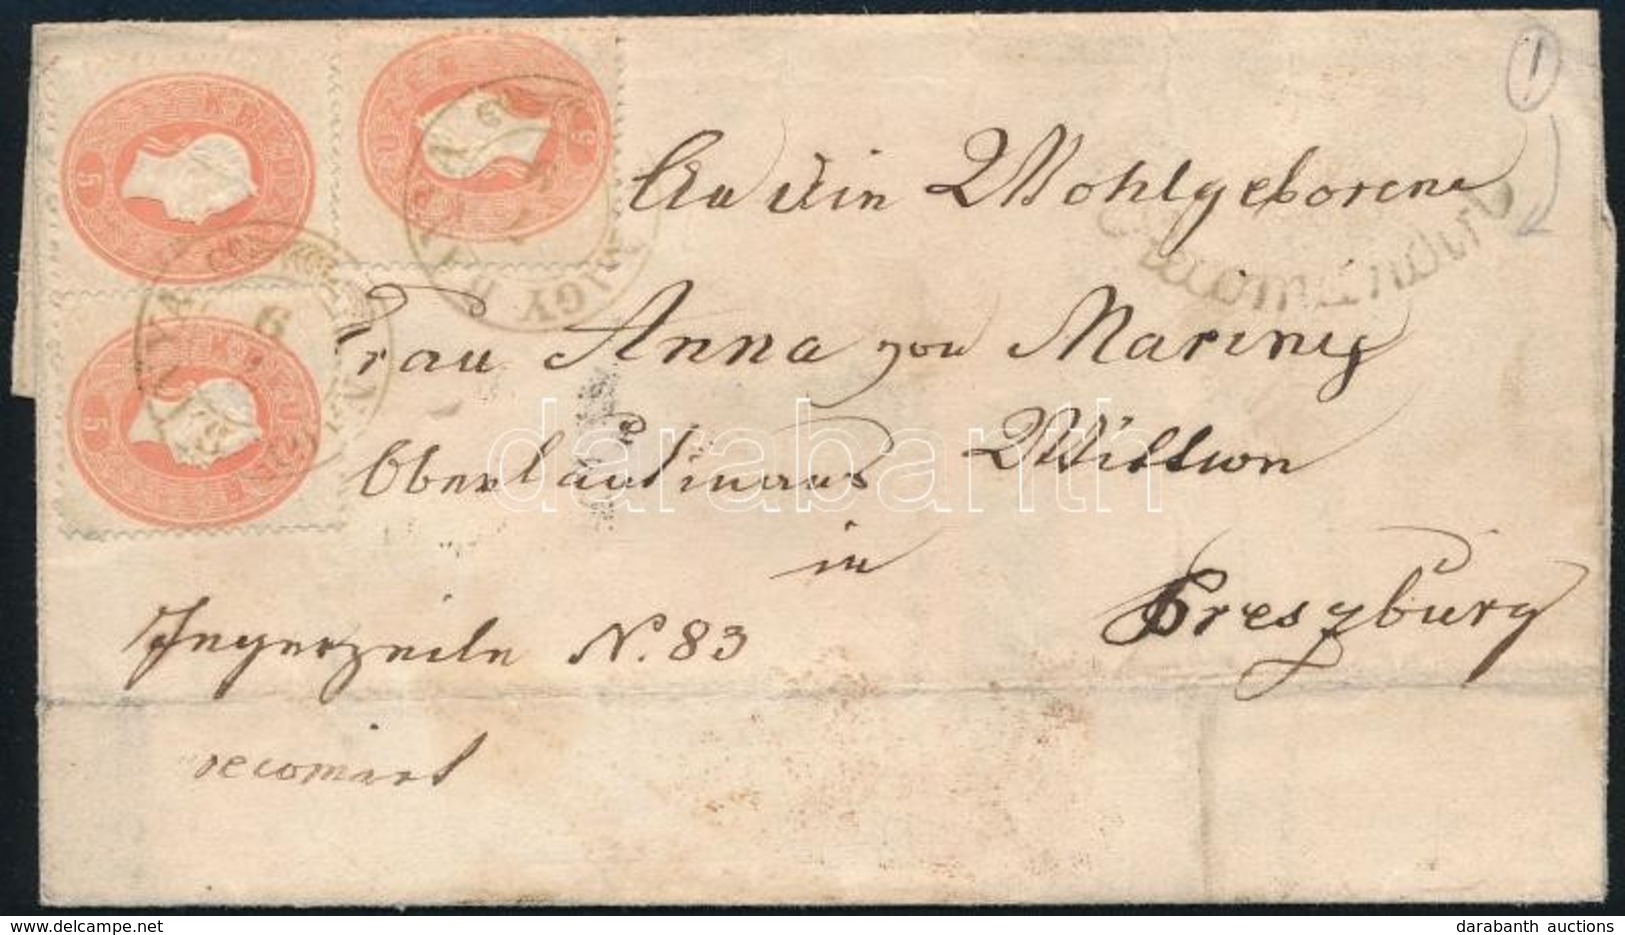 An Ein Wohlgeborene
Frau Anna von Mariny
Oberlautinans Wittwon
in
Preszburg
Jegerzeile N. 83
recomirt
Recomandirt
5 KREUZER
5 KREUZER
5 KREUZER
NAGY
1
darabanth
darabanth auctions